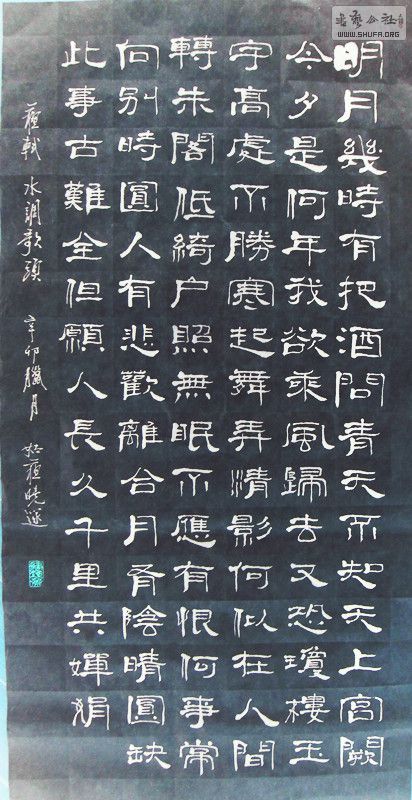 明月幾時有把酒問青天不知天上宮闕
今夕是何年我欲乘風歸去又恐瓊樓玉
宇高處不勝寒起舞弄清影何似在人間
轉朱閣低綺户照無眠不應有恨何事常
向别時圓人有悲歡離合月有陰晴圓缺
此事古難全但願人長久千里共嬋娟
蘇軾 水調歌頭 辛卯臘月
書藝公社
WWW.SHUFA.ORG